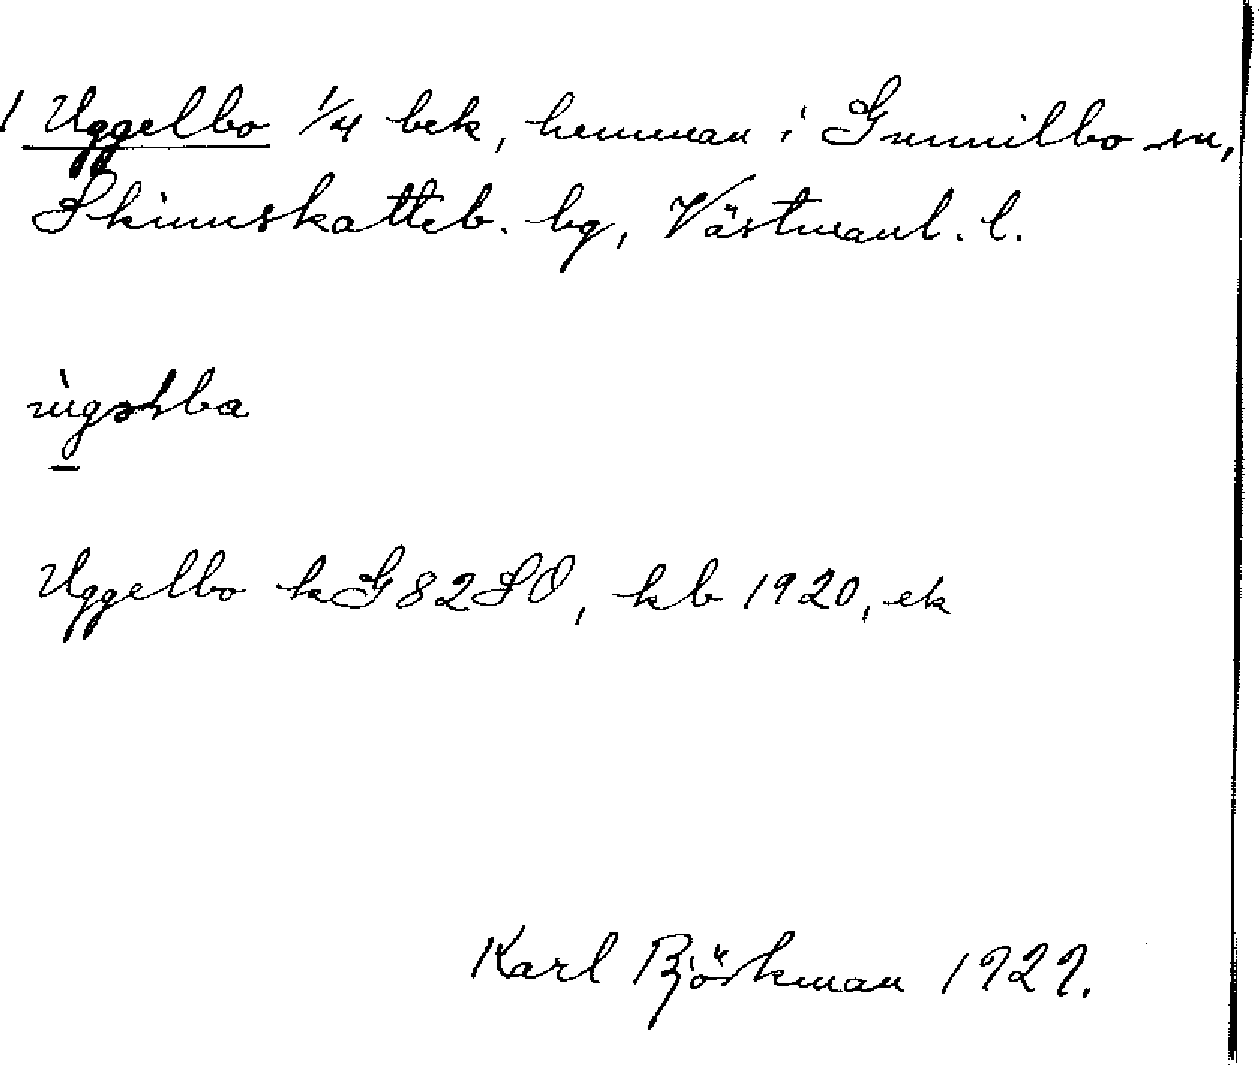 1 Uggelbo 1/4 bek, hemman i Gunnilbo sn,
Skinnskatteb. bg, Västmanl. l.
ùgəlba
Uggelbo kG82SO, kb 1920, ek
Karl Björkman 1929.